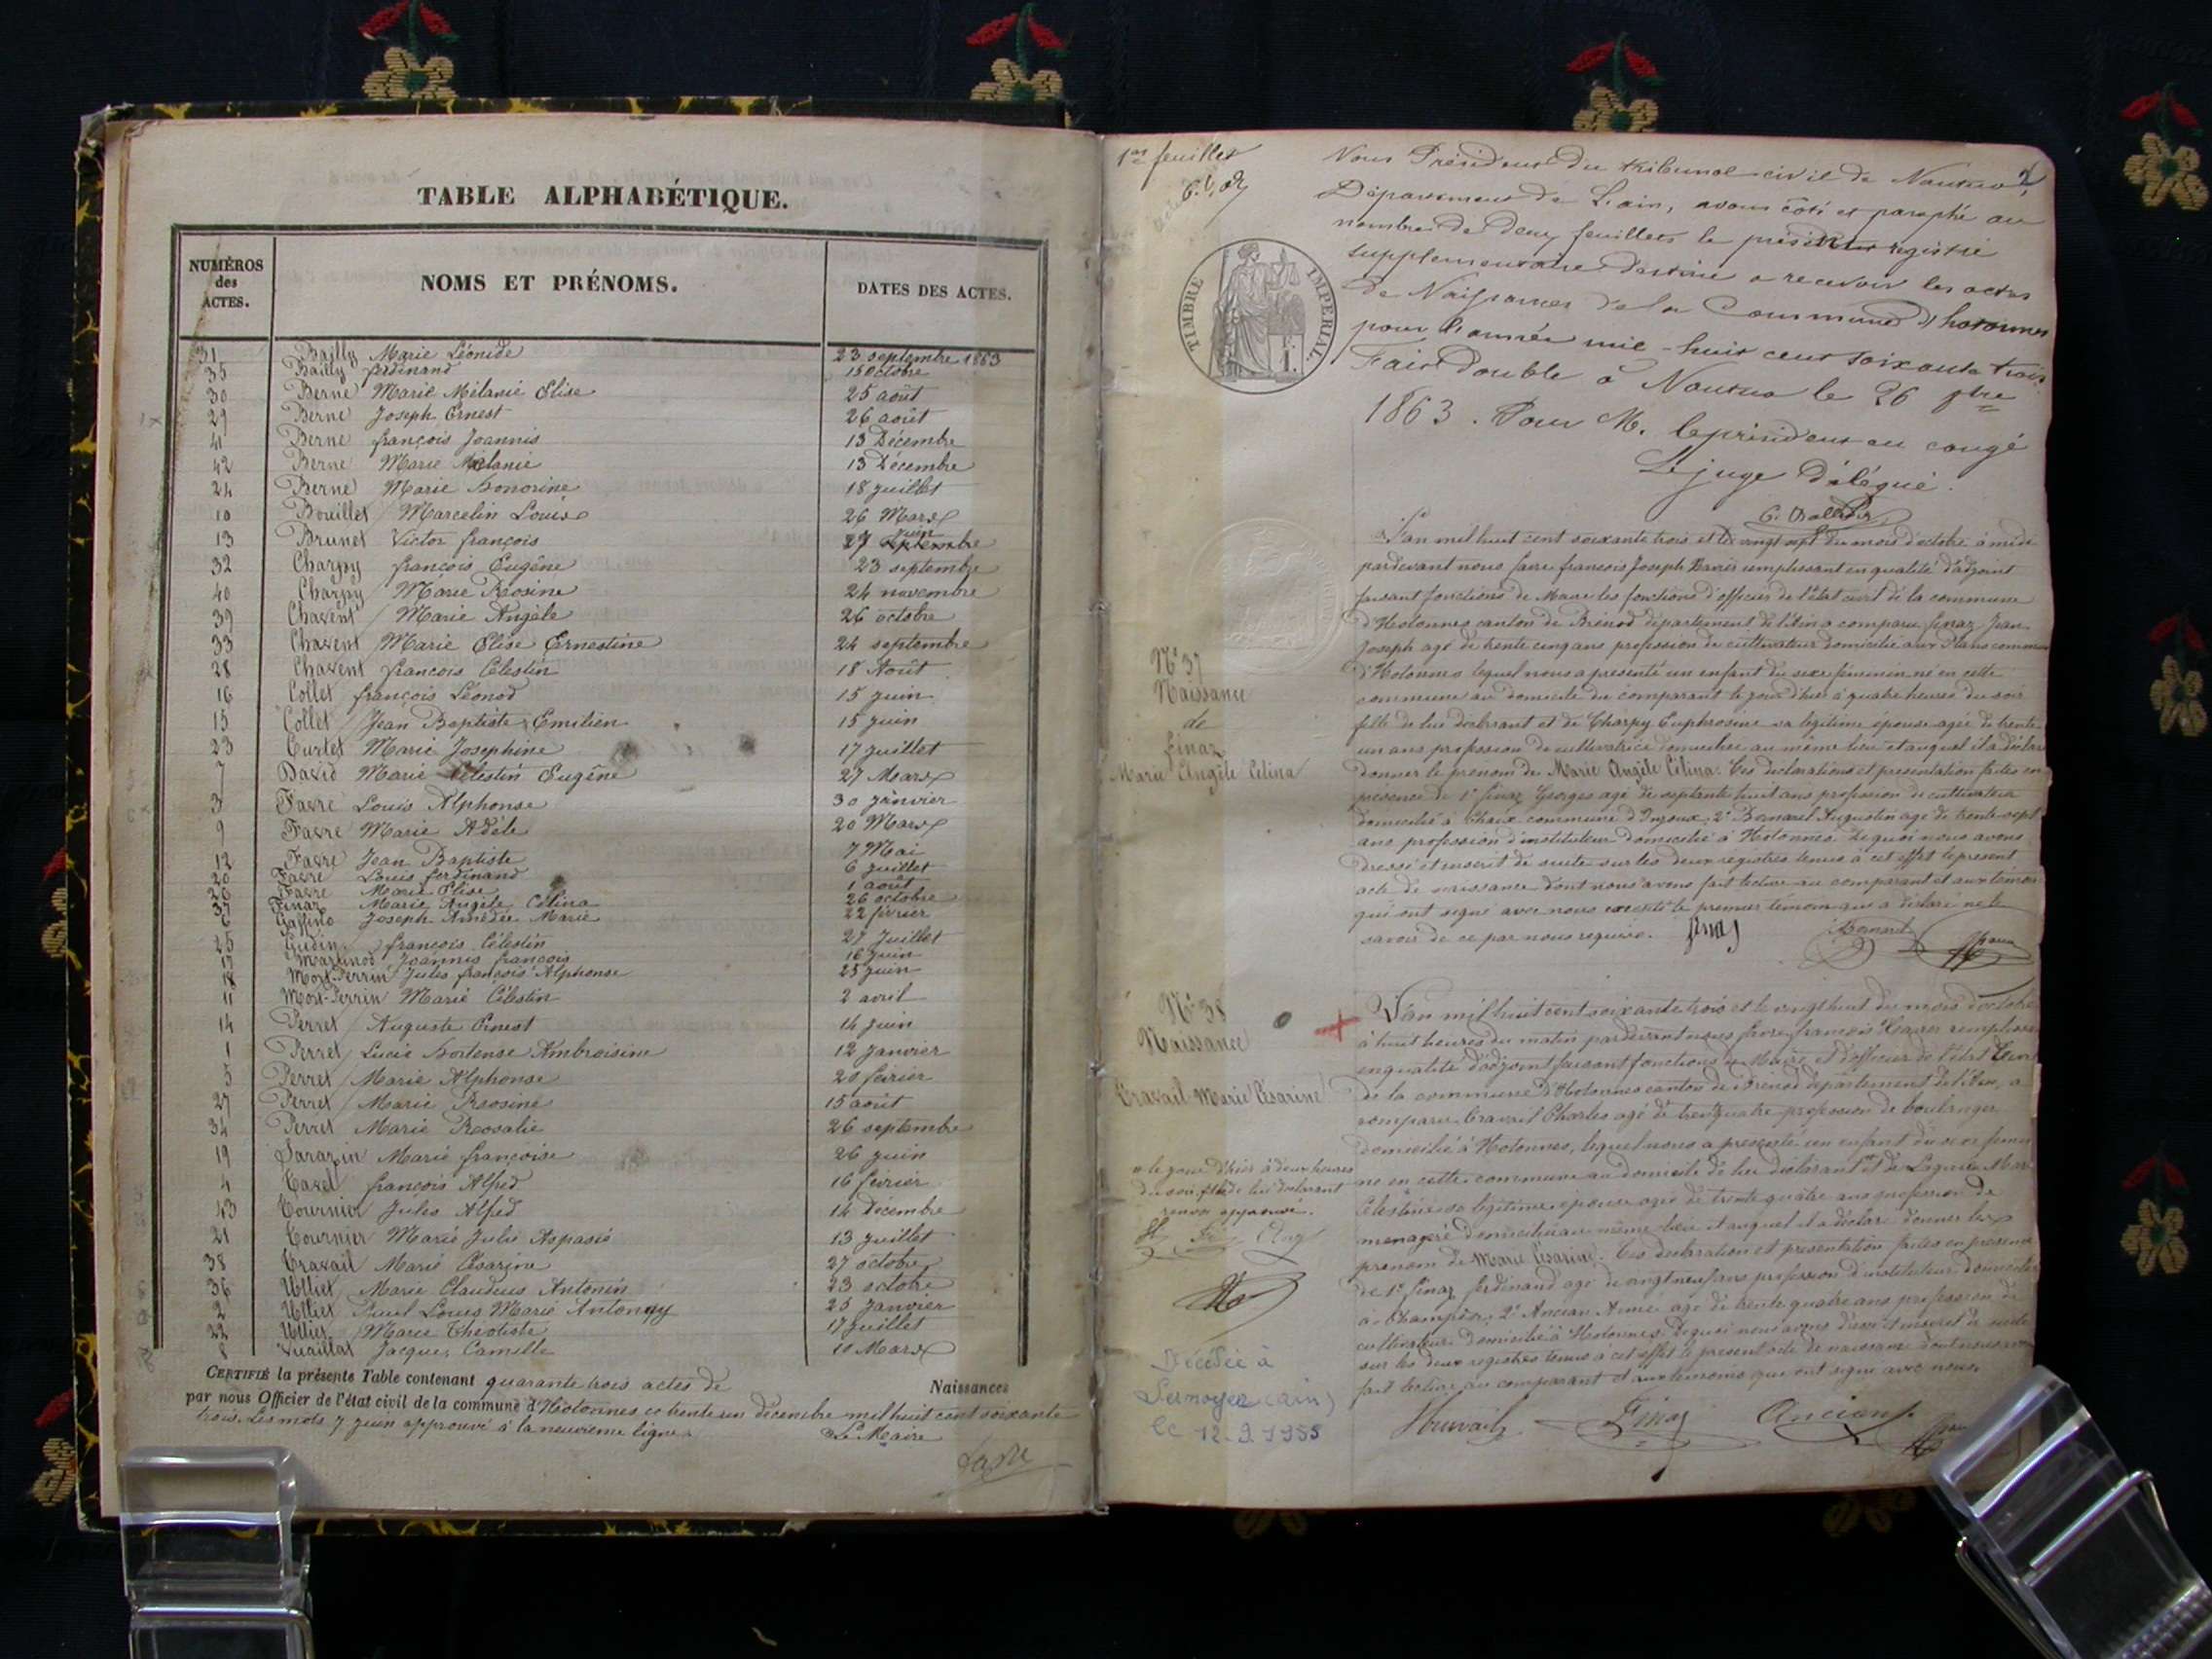 TABLE ALPHABÉTIQUE.
NUMÉROS des ACTES. NOMS ET PRÉNOMS. DATES DES ACTES.
31 Bailly Marie Léonide 23 septembre 1863
35 Bailly ferdinand 15 octobre
30 Berne Marie Mélanie Elise 25 août
29 Berne Joseph Ernest 26 août
41 Berne françois Joannis 13 Décembre
42 Berne Marie Mélanie 13 Décembre
24 Berne Marie Honorine 18 juillet
10 Bouillet Marcelin Louis 26 Mars
13 Brunet Victor françois 7 juin
32 Charpy françois Eugène 23 septembre
40 Charpy Marie Rosine 24 novembre
39 Chavent Marie Angèle 26 octobre
33 Chavent Marie Elise Ernestine 24 septembre
28 Chavent françois Célestin 18 Août
16 Collet françois Léonod 15 juin
15 Collet Jean Baptiste Emilien 15 juin
23 Curtet Marie Josephine 17 juillet
7 David Marie Célestin Eugène 27 Mars
3 Favre Louis Alphonse 30 janvier
9 Favre Marie Adèle 20 Mars
12 Favre Jean Baptiste 7 Mai
20 Favre Louis ferdinand 6 juillet
26 Favre Marie Elise 1 août
37 Finaz Marie Angèle Célina 26 octobre
6 Joseph Amédée Marie 22 février
25 Gudin françois Célestin 27 Juillet
17 Martinod Joannis françois 16 juin
18 Mort-Perrin Jules françois Alphonse 25 juin
11 Mort-Perrin Marie Célestin 2 avril
14 Perret Auguste Ernest 14 juin
1 Perret Lucie Hortense Ambroisine 12 janvier
5 Perret Marie Alphonse 20 février
27 Perret Marie Rosine 15 août
34 Perret Marie Rosalie 26 septembre
19 Sarazin Marie françoise 26 juin
4 Tavel françois Alfred 16 février
43 Tournier Jules Alfred 14 Décembre
21 Tournier Marie Julie Aspasie 13 juillet
38 Travail Marie Césarine 27 octobre
36 Ulliet Marie Claudius Antonin 23 octobre
2 Ulliet Paul Louis Marie Antonny 25 Janvier
22 Ulliet Marie Théotiste 17 juillet
8 Vuaillat Jacques Camille 10 Mars
CERTIFIÉ la présente Table contenant quarante trois actes de Naissances
par nous Officier de l'état civil de la commune d'Hotonnes ce trente un décembre mil huit cent soixante
trois. Les mots 7 juin approuvé à la neuvième ligne.
Le Maire
1er feuillet
Nous Président du tribunal civil de Nantua,
Département de L'ain, avons coté et paraphé au
nombre de deux feuillets le présent registre
supplémentaire destiné a recevoir les actes
de Naissances de la Commune d'hotonnes
pour l'année mil-huit cent soixante trois
Fait Double à Nantua le 26 8bre
1863. Pour M. le président en congé
Le juge Délégué.
TIMBRE IMPÉRIAL.
N° 37
Naissance
de
finaz
Marie Angèle Célina
L'an mil huit cent soixante trois et le vingt sept du mois d'octobre à midi
pardevant nous favre françois Joseph Xavier remplissant en qualité d'adjoint
faisant fonctions de Maire les fonctions d'officier de l'état civil de la commune
d'Hotonnes canton de Brénod département de l'Ain a comparu finaz Jean
Joseph agé de trente cinq ans profession de cultivateur domicilié aux Plans commune
d'Hotonnes lequel nous a présenté un enfant du sexe féminin né en cette
commune au domicile du comparant le jour d'hier à quatre heures du soir
fille de lui déclarant et de Charpy Euphrosine sa légitime épouse agée de trente
un ans profession de cultivatrice domiciliée au même lieu et auquel il a déclaré
donner le prénom de Marie Angèle Célina. Ces déclarations et présentation faites en
présence de 1° finaz Georges agé de septante huit ans profession de cultivateur
domicilié à Chaix commune d'Injoux, 2° Bernard Augustin agé de trente sept
ans profession d'instituteur domicilié à Hotonnes. De quoi nous avons
dressé et inscrit de suite sur les deux registres tenus à cet effet le présent
acte de naissance dont nous avons fait lecture au comparant et aux témoins
qui ont signé avec nous excepté le premier témoin qui a déclaré ne le
savoir de ce par nous requis.
finaz Bernard
N° 38
Naissance
Travail Marie Césarine
L'an mil huit cent soixante trois et le vingt huit du mois d'octobre
à huit heures du matin pardevant nous favre françois Xavier remplissant
en qualité d'adjoint faisant fonctions de Maire et d'officier de l'état civil
de la commune d'Hotonnes canton de Brénod département de l'Ain, a
comparu Travail Charles agé de trente quatre profession de boulanger
domicilié à Hotonnes, lequel nous a présenté un enfant du sexe féminin
né en cette commune au domicile de lui déclarant et de Marie
Célestine sa légitime épouse agée de trente quatre ans profession de
ménagère domiciliée au même lieu et auquel il a déclaré donner les
prénom de Marie Césarine. Ces déclaration et présentation faites en présence
de 1° finaz ferdinand agé de vingt neuf ans profession d'instituteur domicilié
à Champdor, 2° Ancian Aimé agé de trente quatre ans profession de
cultivateur domicilié à Hotonnes. De quoi nous avons dressé et inscrit de suite
sur les deux registres tenus à cet effet le présent acte de naissance dont nous avons
fait lecture au comparant et aux témoins qui ont signé avec nous.
le jour d'hier à deux heures
du soir fille de lui déclarant
renvoi approuvé.
Décédée à
(ain)
le 12.9.1955
Travail Finaz Ancian